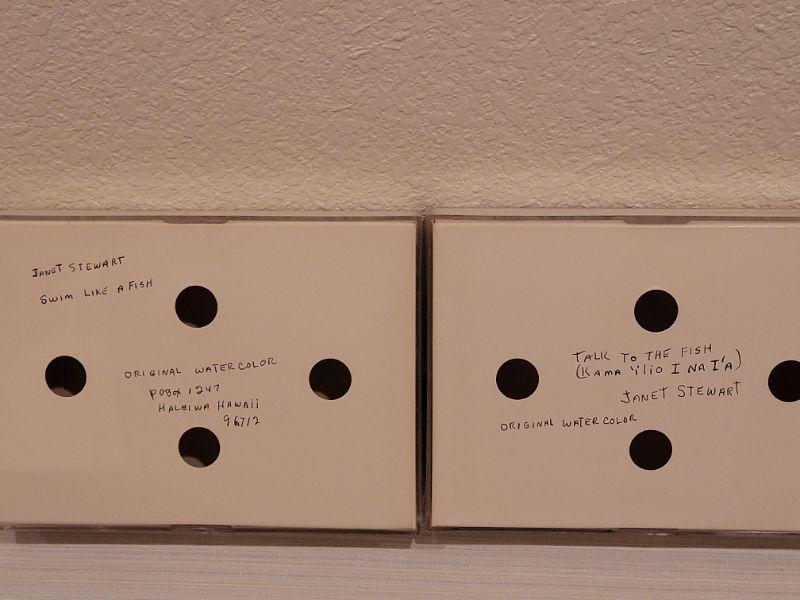 JANET STEWART
SWIM LIKE A FISH
ORIGINAL WATERCOLOR
POBOX 1247
HALEIWA HAWAII
96712
TALK TO THE FISH
(KAMA 'ILIO I NA I'A)
JANET STEWART
ORIGINAL WATERCOLOR